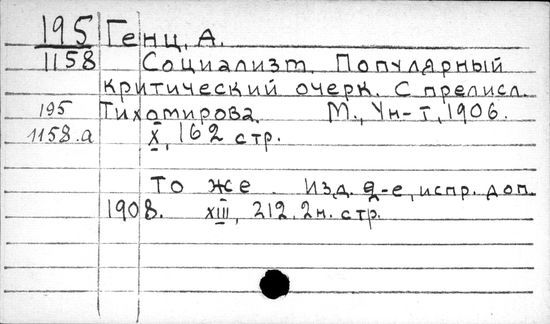 195 Генц, А.
1158 Социализм. Популярный
критический очерк. С прелисл.
195 Тихомирова. М., Ун-т, 1906.
1158.а X, 162 стр.
То же. Изд. 2-е, испр. доп.
1908. XIII, 212, 2н. стр.